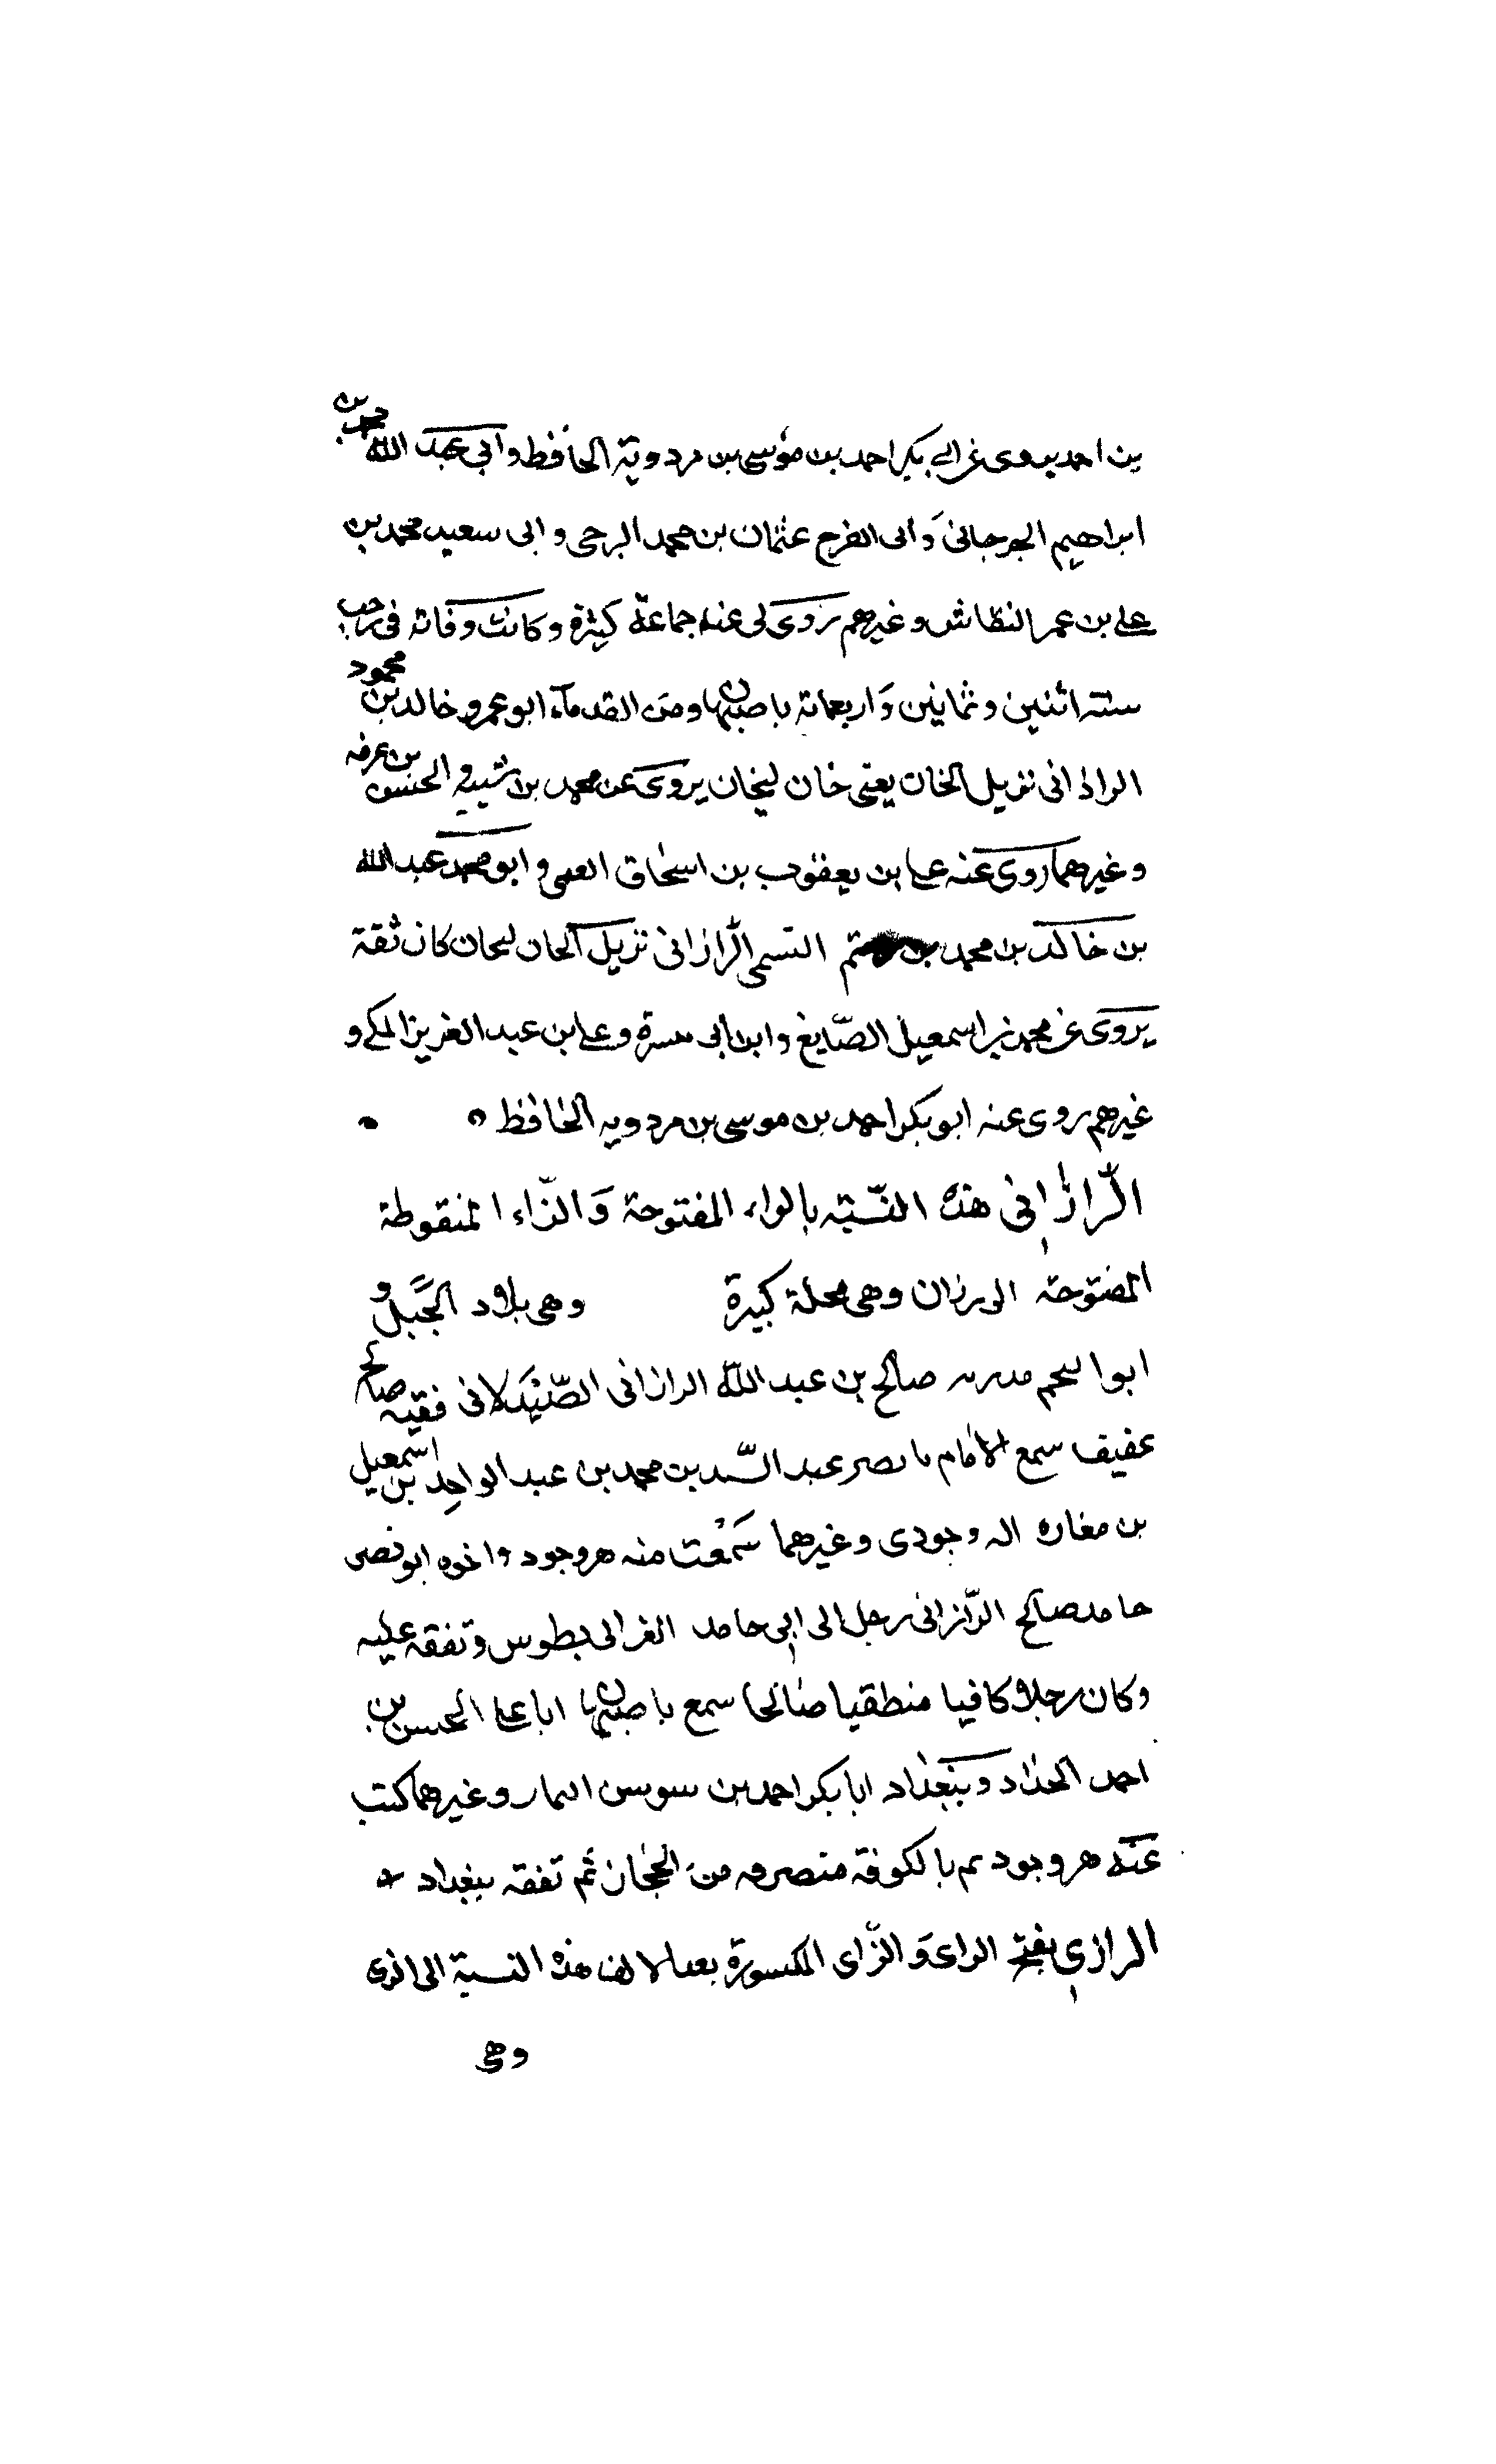 بن احمد يروى عن ابى بكر احمد بن موسى بن مردوية الحافظ وابى عبد الله محمد بن
ابراهيم الجرجانى وابى الفرج عثمان بن محمد البرجى وابى سعيد محمد بن
على بن عمر النقاش وغيرهم روى لى عنه جماعة كثيرة وكانت وفاته فى رجب
سنة اثنين وثمانين واربعماية باصبهان ومن القدماء ابو عمرو خالد بن محمود
الرازانى نزيل الخان يعنى خان لنجان يروى عن محمد بن شيبه والحسن بن عرفه
وغيرهما روى عنه على بن يعقوب بن اسحاق القمى وابو محمد عبد الله
بن خالد بن محمد بن رستم التسمى الرازانى نزيل الخان لنجان كان ثقة
يروى عن محمد بن اسمعيل الصايغ وابن ابى مسرة وعلى بن عبد العزيز المكى و
غيرهم روى عنه ابو بكر احمد بن موسى بن مردويه الحافظ
الرازانى هذه النسبة بالراء المفتوحة والزاء المنقوطة
المفتوحة الى رزان وهى محلة كبيرة وهى بلاد الجبل و
ابو النجم صالح بن عبد الله الرازانى الصيدلانى فقيه صالح
عفيف سمع الامام با نصر عبد السيد بن محمد بن عبد الواحد بن اسمعيل
بن مغاره وجودى وغيرهما سمعت منه هروجود واخوه ابو نصر
حامد صالح الرازانى رحل الى ابى حامد الغزالى بطوس وتفقه عليه
وكان رجلا كافيا منطقيا صالحا سمع باصبهان ابا على الحسن بن
احمد الحداد وببغداد ابا بكر احمد بن سوسن التمار وغيرهما كتب
عنه هروجود بم بالكوفة منصرفه من الحجان ثم تفقه ببغداد
الرازى بفتح الراى والزاى المكسورة بعد الالف هذه النسبة الى الرى
وهى